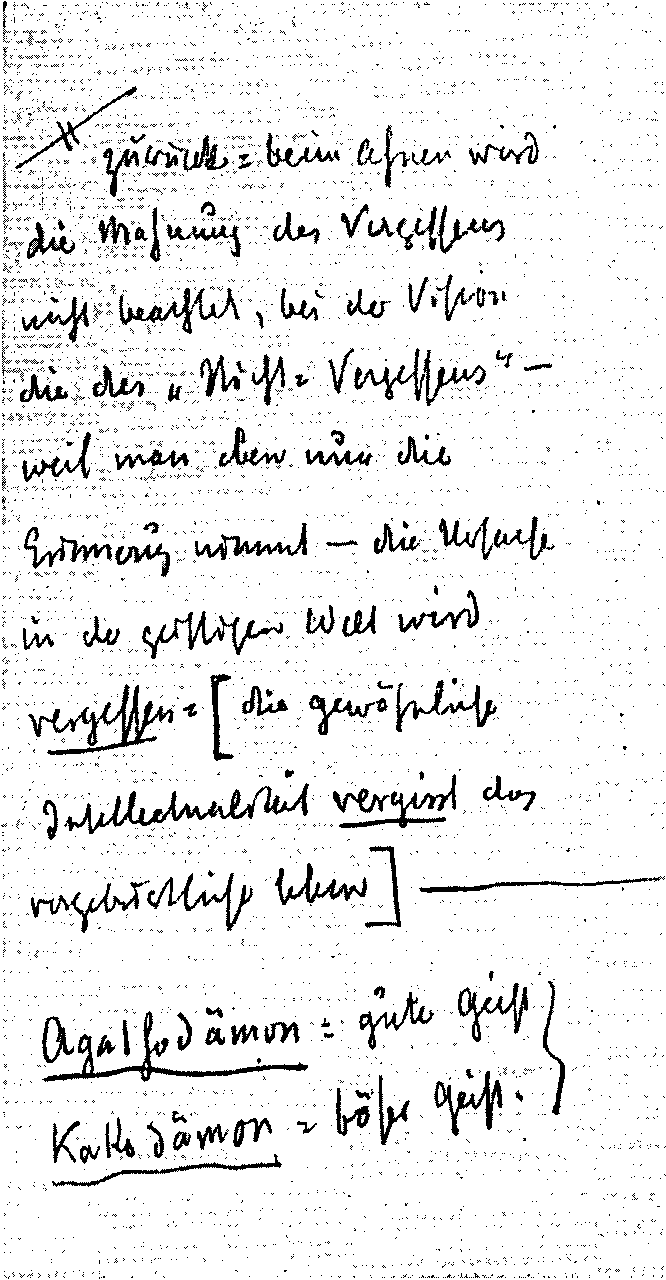 zurück = beim Ahnen wird
die Mahnung des Vergessens
nicht beachtet, bei der Vision
die des „Nicht = Vergessens" —
weil man eben nur die
Erinnerung nimmt — die Ursache
in der geistigen Welt wird
vergessen = [die gewöhnliche
Intellectualität vergisst das
vorgeburtliche Leben] —
Agathodämon = gute Geist
Kakodämon = böse Geist.